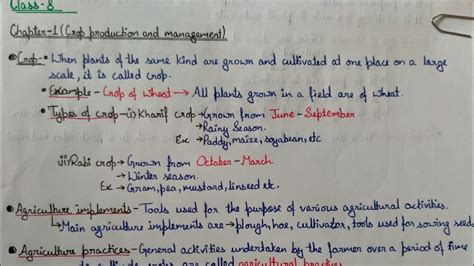 Class-8
Chapter-1 (Crop production and management)
• Crop-• When plants of the same kind are grown and cultivated at one place on a large
scale, it is called crop.
• Example - Crop of wheat → All plants grown in a field are of wheat.
• Types of crop → i) Kharif crop → Grown from June - September
→ Rainy Season.
Ex → Paddy, maize, soyabean, etc
ii) Rabi crop → Grown from October - March
→ Winter season.
Ex → Gram, pea, mustard, linseed et
• Agriculture implements - Tools used for the purpose of various agricultural activities.
Main agriculture implements are → plough, hoe, cultivator, tools used for sowing seed
• Agriculture practices - General activities undertaken by the farmer over a period of time
are called agricultural practices